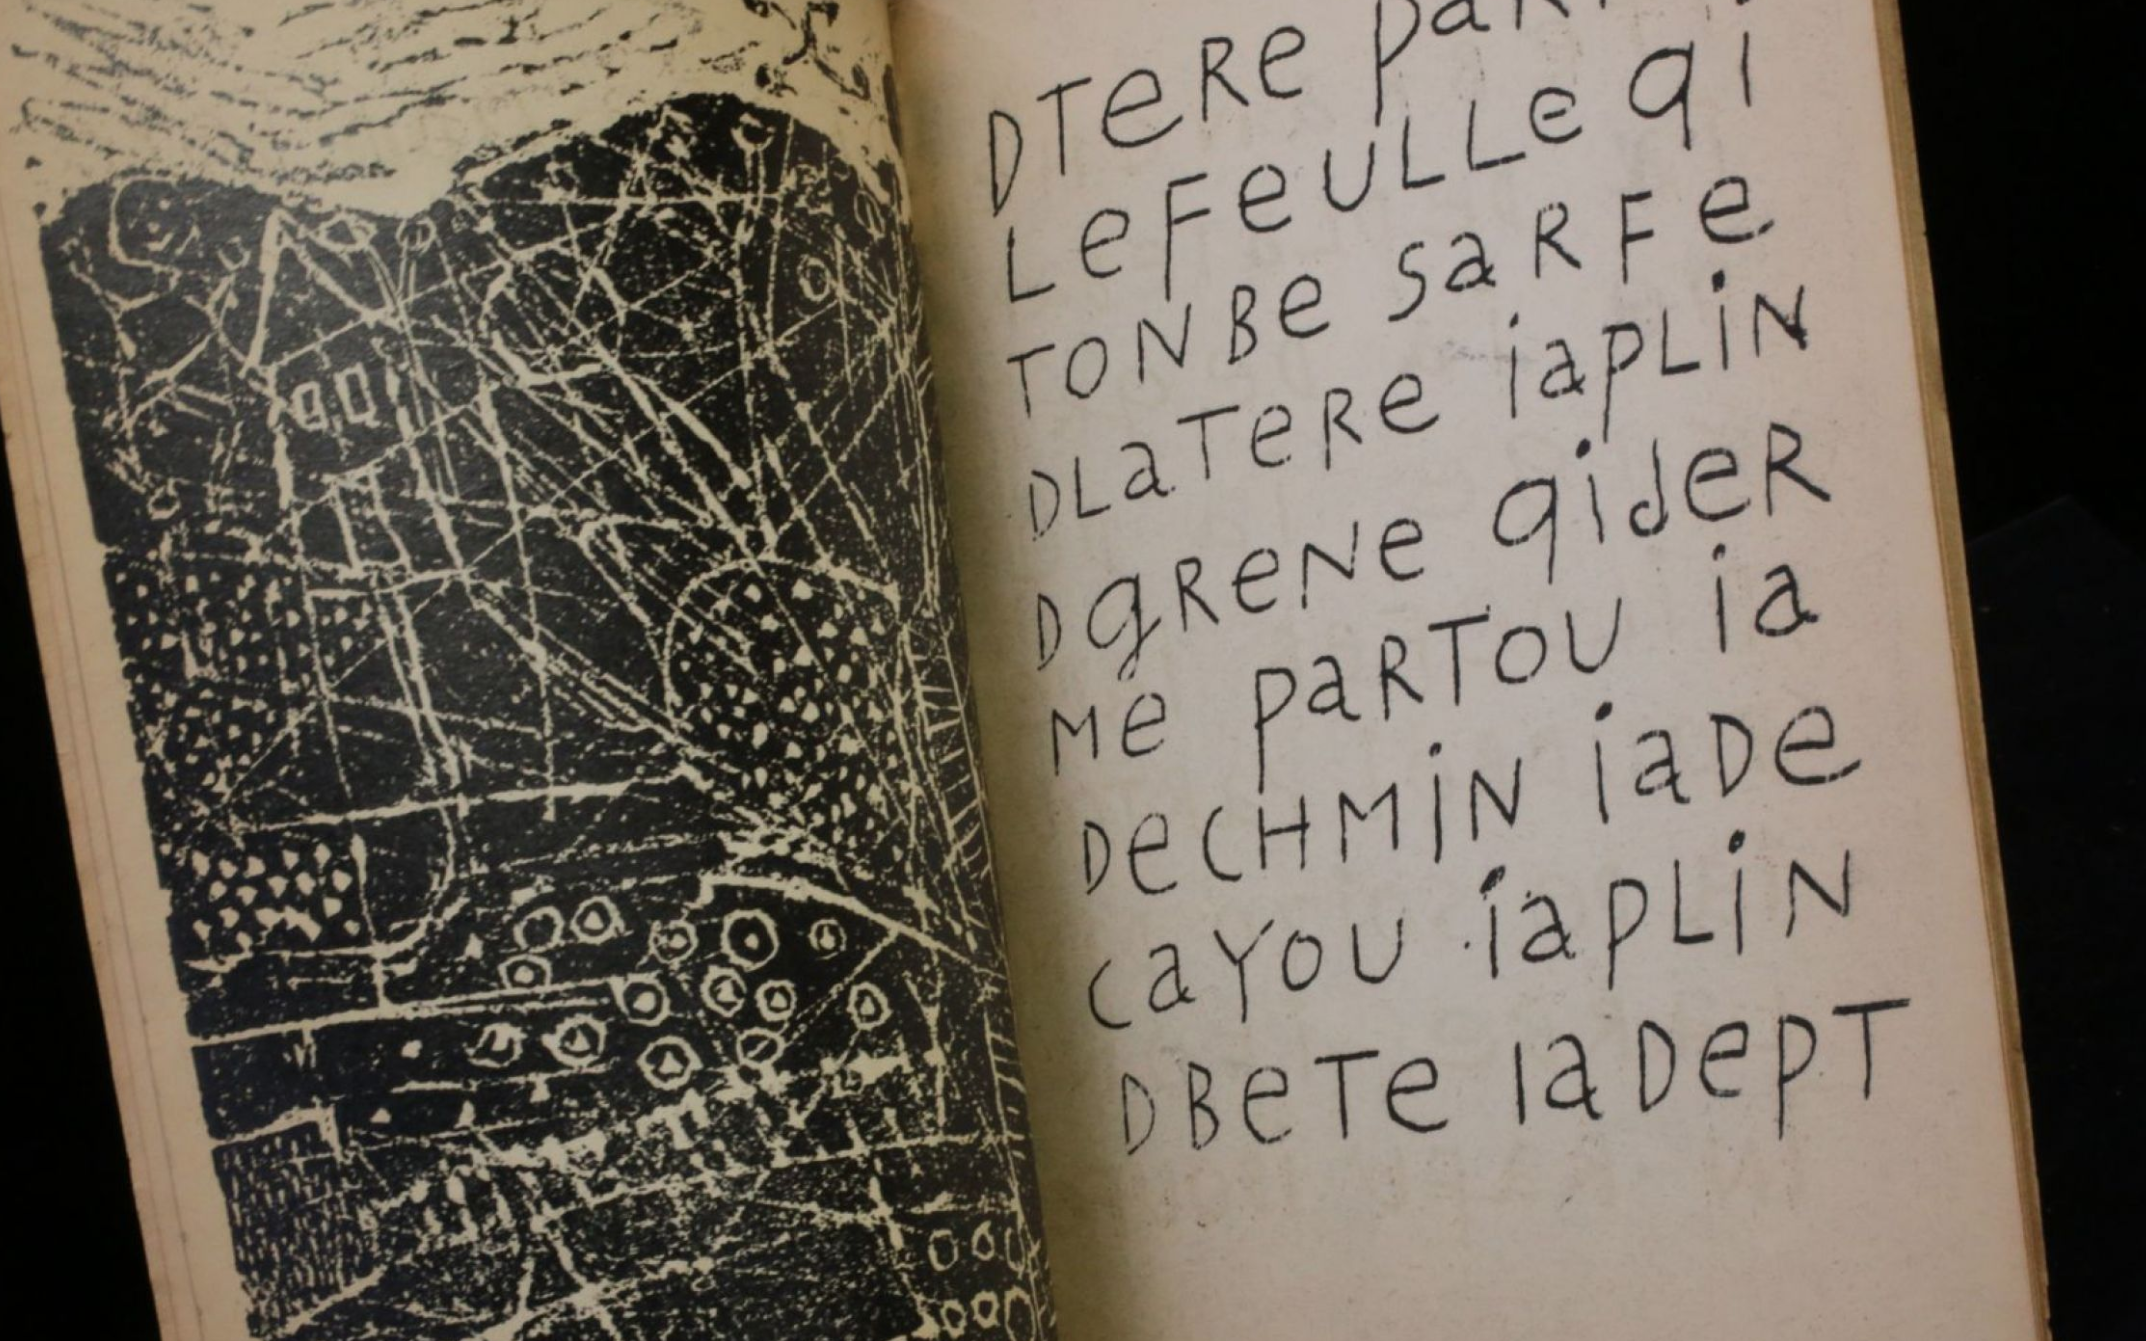 DTeRe paR
LeFeULLe qi
TONBe saRFe
DLaTeRe iapLiN
DgReNe qideR
Me paRTOU ia
DeCHMiN iaDe
CaYOU iapLiN
DBeTe IaDepT